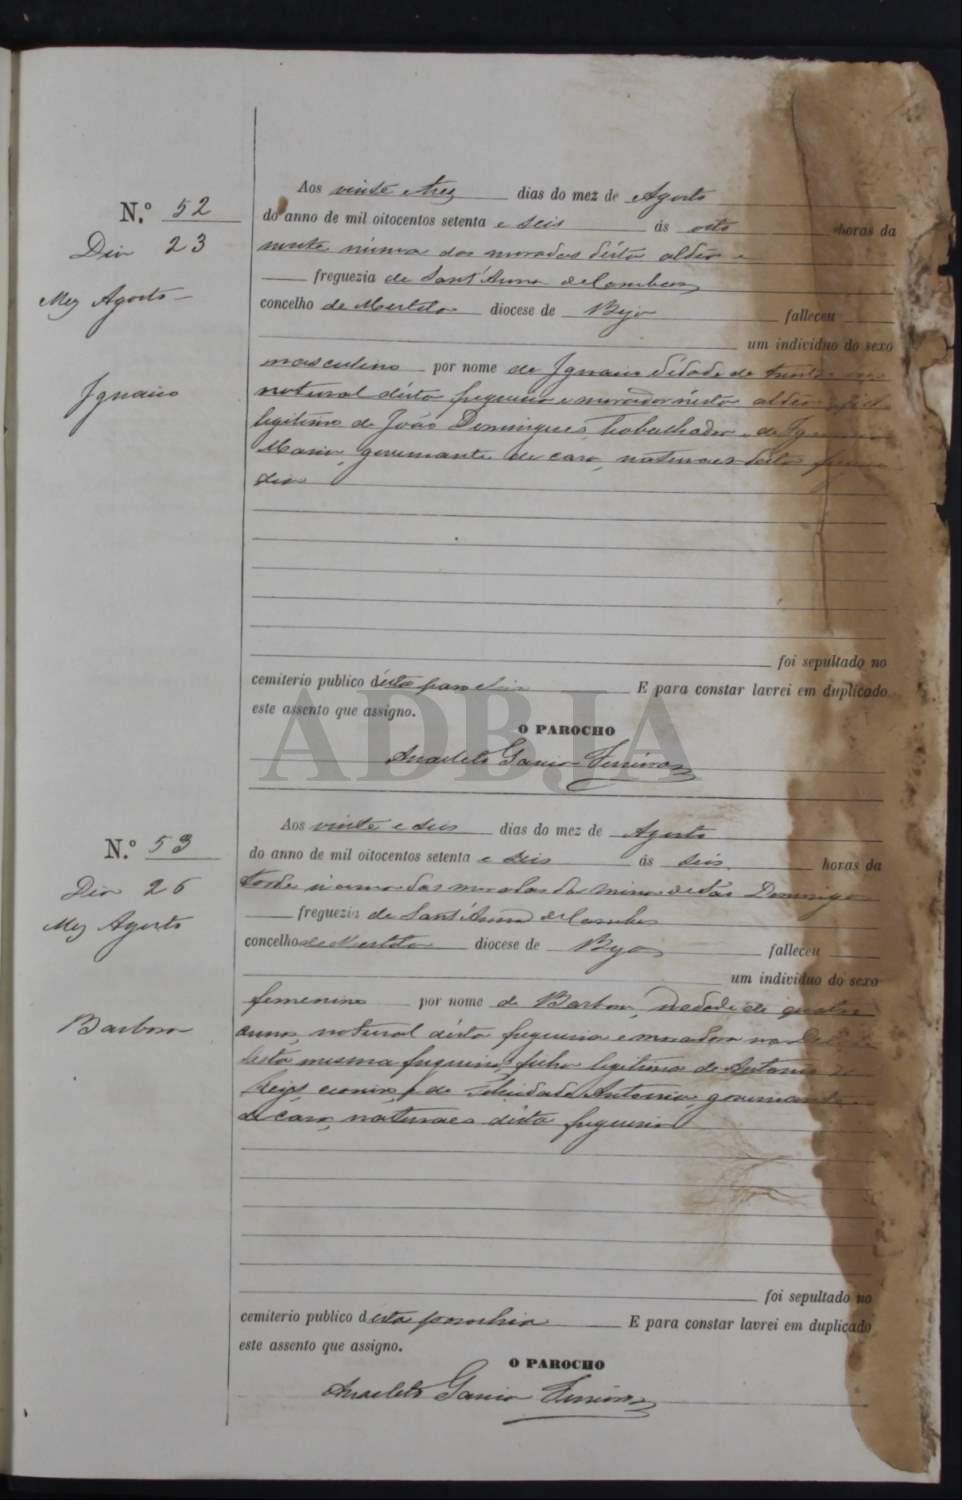 Aos vinte e trez dias do mez de Agosto
N.º 52
do anno de mil oitocentos setenta e seis ás oito horas da
Dia 23
noute n'uma das moradas d'esta aldêa
freguezia de Sant'Anna de Cambas
Mez Agosto
concelho de Mertola diocese de Beja falleceu
um individuo do sexo
masculino por nome de Ignacio d'idade de trinta
Ignacio
natural d'esta freguezia e morador n'esta aldêa filho
legitimo de João Domingues, Trabalhador, de
Maria, governante de casa, naturaes desta
foi sepultado no
cemiterio publico d'esta parochia E para constar lavrei em duplicado
este assento que assigno.
O PAROCHO
Anacleto Garcia
ADBJA
Aos vinte e seis dias do mez de Agosto
N.º 53
do anno de mil oitocentos setenta e seis ás seis horas da
Dia 26
tarde n'uma das moradas da mina de São Domingos
freguezia de Sant'Anna de Cambas
Mez Agosto
concelho de Mertola diocese de Beja falleceu
um individuo do sexo
femenino por nome de Barbara, d'idade de quatro
Barbara
annos, natural d'esta freguezia e moradora
desta mesma freguezia, filha legitima de Antonio
de Felicidade Antonia, governante
de casa, naturaes d'esta freguezia
foi sepultado no
cemiterio publico d'esta parochia E para constar lavrei em duplicado
este assento que assigno.
O PAROCHO
Anacleto Garcia